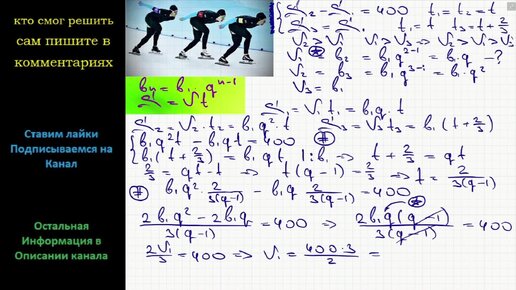 кто смог решить
сам пишите в
комментариях
bₙ = b₁qⁿ⁻¹
S = Vt
Ставим лайки
Подписываемся на
Канал
Остальная
Информация в
Описании канала
S₂ - S₁ = 400 t₁ = t₂ = t
t₁ = t t₃ = t + 2/3
V₂ > V₁ > V₃
V₁ = b₂ = b₁q²⁻¹ = b₁q - ?
V₂ = b₃ = b₁q³⁻¹ = b₁·q²
V₃ = b₁
S₁ = V₁t₁ = b₁q·t
S₂ = V₂·t₂ = b₁q²·t
S = V₃t₃ = b₁(t + 2/3)
b₁q²t - b₁qt = 400
b₁(t + 2/3) = b₁qt |:b₁ ⇒ t + 2/3 = qt
2/3 = qt - t ⇒ t(q-1) = 2/3 ⇒ t = 2/3(q-1)
b₁q² 2/3(q-1) - b₁q 2/3(q-1) = 400
2b₁q² - 2b₁q / 3(q-1) = 400 ⇒ 2b₁q(q-1) / 3(q-1) = 400
2V₁/3 = 400 ⇒ V₁ = 400·3/2 =